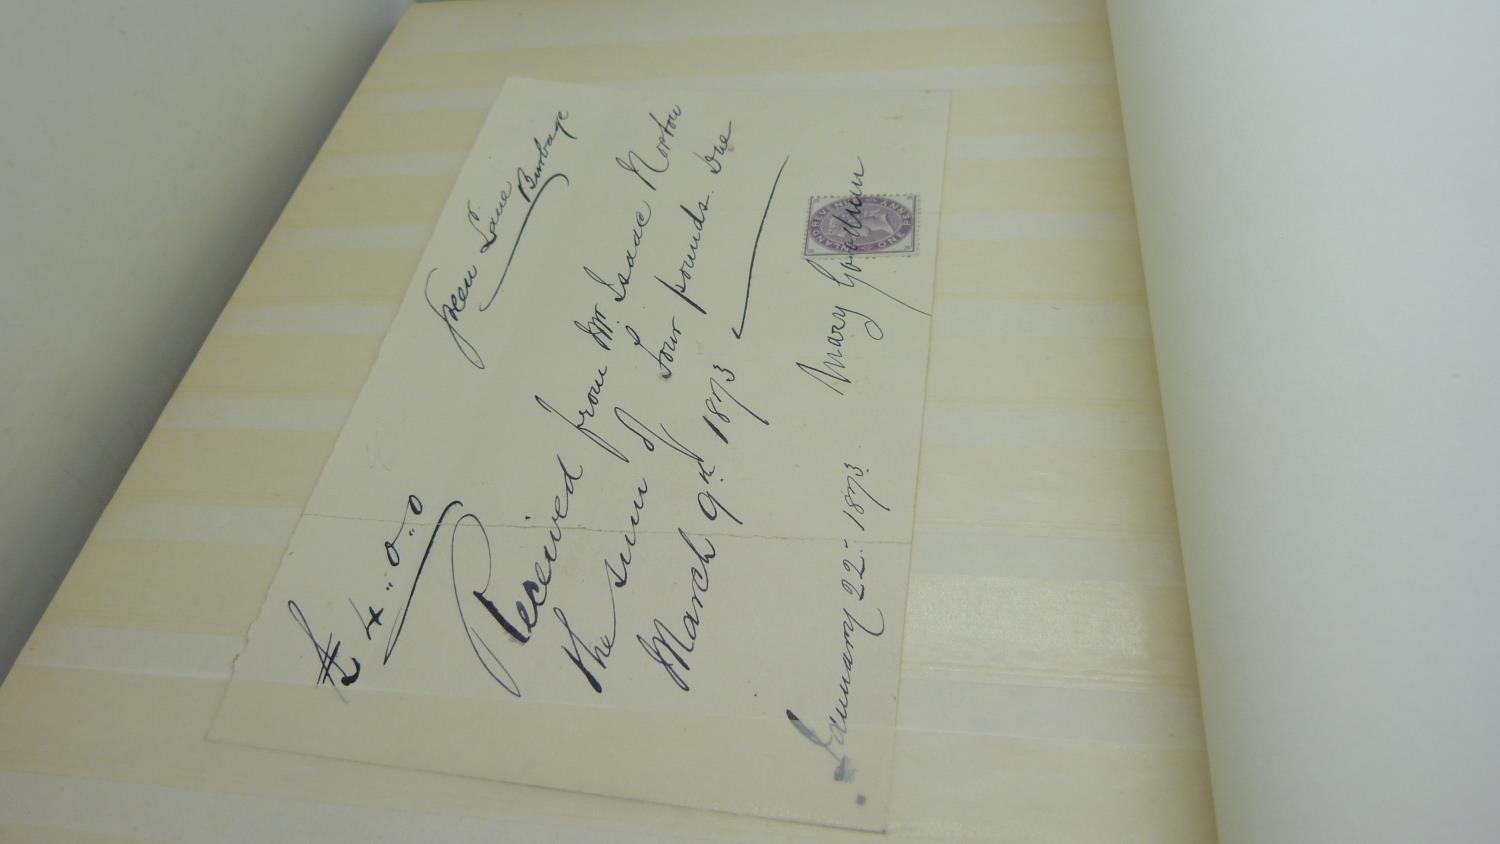 Green Lane Burbage
£4..0..0
Received from Mr. Isaac Norton
the sum of four pounds. Due
March 9th 1873
INLAND REVENUE ONE PENNY
Mary Goodman
January 22: 1873.